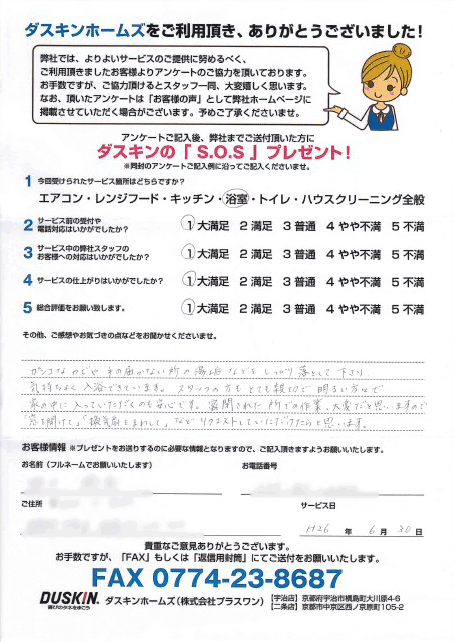 ダスキンホームズをご利用頂き、ありがとうございました!
弊社では、よりよいサービスのご提供に努めるべく、
ご利用頂きましたお客様よりアンケートのご協力を頂いております。
お手数ですが、ご協力頂けるとスタッフ一同、大変嬉しく思います。
なお、頂いたアンケートは「お客様の声」として弊社ホームページに
掲載させていただく場合がございます。予めご了承くださいませ。
アンケートご記入後、弊社までご送付頂いた方に
ダスキンの「S.O.S」プレゼント!
※同封のアンケートご記入例に沿ってご記入くださいませ。
1 今回受けられたサービス箇所はどちらですか?
エアコン・レンジフード・キッチン・浴室・トイレ・ハウスクリーニング全般
2 サービス前の受付や
電話対応はいかがでしたか?
1 大満足 2 満足 3 普通 4 やや不満 5 不満
3 サービス中の弊社スタッフの
お客様への対応はいかがでしたか?
1 大満足 2 満足 3 普通 4 やや不満 5 不満
4 サービスの仕上がりはいかがでしたか?
1 大満足 2 満足 3 普通 4 やや不満 5 不満
5 総合評価をお願い致します。
1 大満足 2 満足 3 普通 4 やや不満 5 不満
その他、ご感想やお気づきの点などをお聞かせくださいませ。
ガンコなカビや手の届かない所の湯垢などもしっかり落として下さり
気持ちよく入浴できています。スタッフの方もとても親切で明るい方々で
家の中に入っていただくのも安心です。密閉された所での作業、大変だと思いますので
「窓を開けて」「換気扇をまわして」などリクエストしていただけたらと思います。
お客様情報 ※プレゼントをお送りするのに必要な情報となりますので、ご記入頂きますようお願いいたします。
お名前(フルネームでお願いいたします)
お電話番号
ご住所
サービス日
H26 年 6 月 30 日
貴重なご意見ありがとうございます。
お手数ですが、「FAX」もしくは「返信用封筒」にてご送付をお願いいたします。
FAX 0774-23-8687
DUSKIN
喜びのタネをまこう
ダスキンホームズ(株式会社プラスワン)
【宇治店】京都府宇治市槇島町大川原4-6
【二条店】京都市中京区西ノ京原町105-2